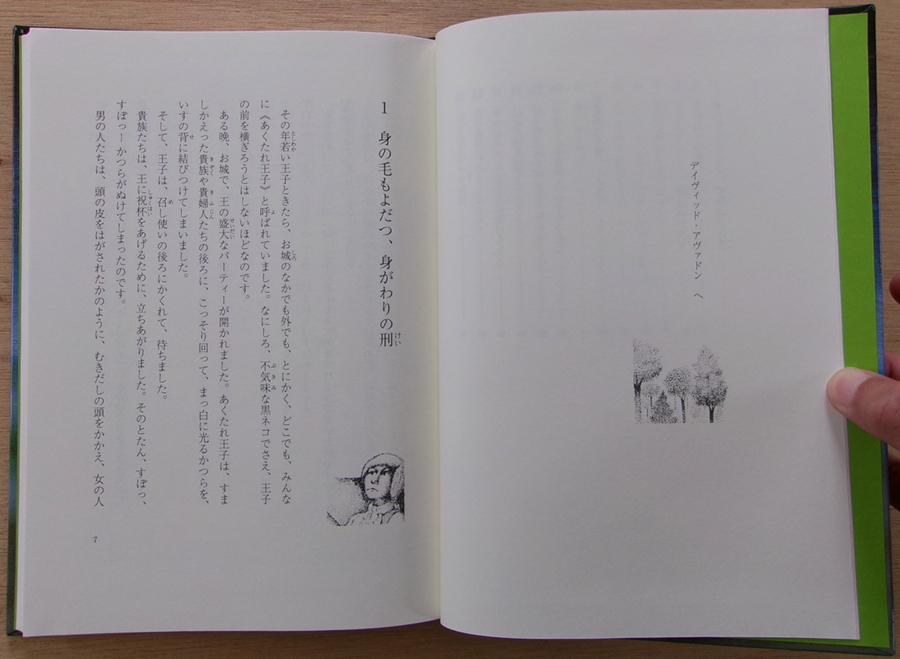 デイヴィッド・アヴァドン へ
1 身の毛もよだつ、身がわりの刑
その年若い王子ときたら、お城のなかでも外でも、とにかく、どこでも、みんな
に《あくたれ王子》と呼ばれていました。なにしろ、不気味な黒ネコでさえ、王子
の前を横ぎろうとはしないほどなのです。
ある晩、お城で、王の盛大なパーティーが開かれました。あくたれ王子は、すま
しかえった貴族や貴婦人たちの後ろに、こっそり回って、まっ白に光るかつらを、
いすの背に結びつけてしまいました。
そして、王子は、召し使いの後ろにかくれて、待ちました。
貴族たちは、王に祝杯をあげるために、立ちあがりました。そのとたん、すぽっ、
すぽっ―かつらがぬけてしまったのです。
男の人たちは、頭の皮をはがされたかのように、むきだしの頭をかかえ、女の人
7